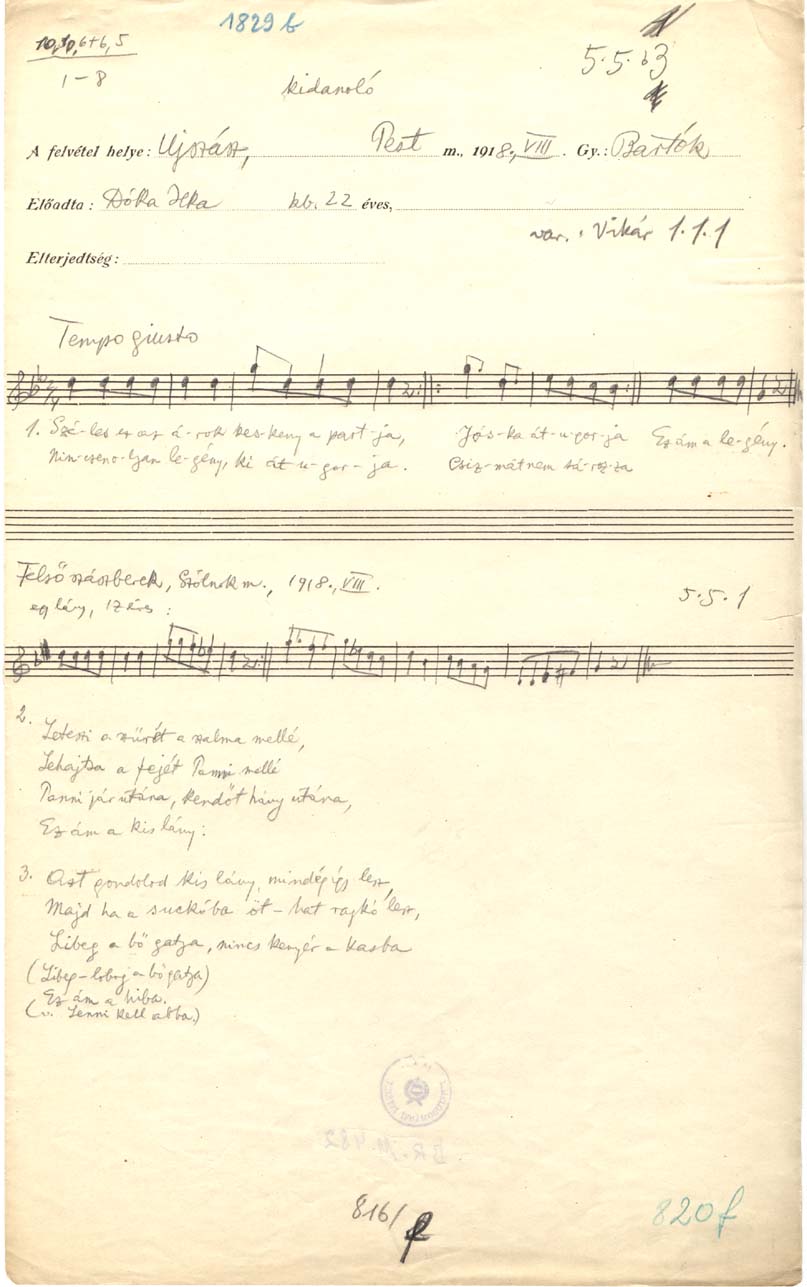 1829 b
10,10, 6+6, 5
5.5.b3
1–8
kidanoló
A felvétel helye: Ujszász, Pest m., 1918., VIII. Gy.: Bartók
Előadta: Dóka Ilka kb. 22 éves,
var.: Vikár 1.1.1
Elterjedtség:
Tempo giusto
1. Szé-les ez az á-rok kes-keny a part-ja, Jós-ka át-u-gor-ja Ez ám a le-gény.
Nincsen o-lyan le-gény, ki át-u-gor-ja. Csiz-mát nem sá-roz-za
Felsőszászberek, Szolnok m., 1918., VIII.
5.5.1
egy lány, 17 éves:
2.
Leteszi a szűrét a szalma mellé,
Lehajtsa a fejét Panni mellé
Panni jár utána, kendőt hány utána,
Ez ám a kis lány.
3. Aszt gondolod kis lány, mindég így lesz,
Majd ha a suckóba öt–hat rajkó lesz,
Libeg a bő gatya, nincs kenyér a kasba
(Libeg-lobog a bő gatya)
Ez ám a hiba.
(v. Lenni kell abba.)
BR. M. 482
816/f
820f